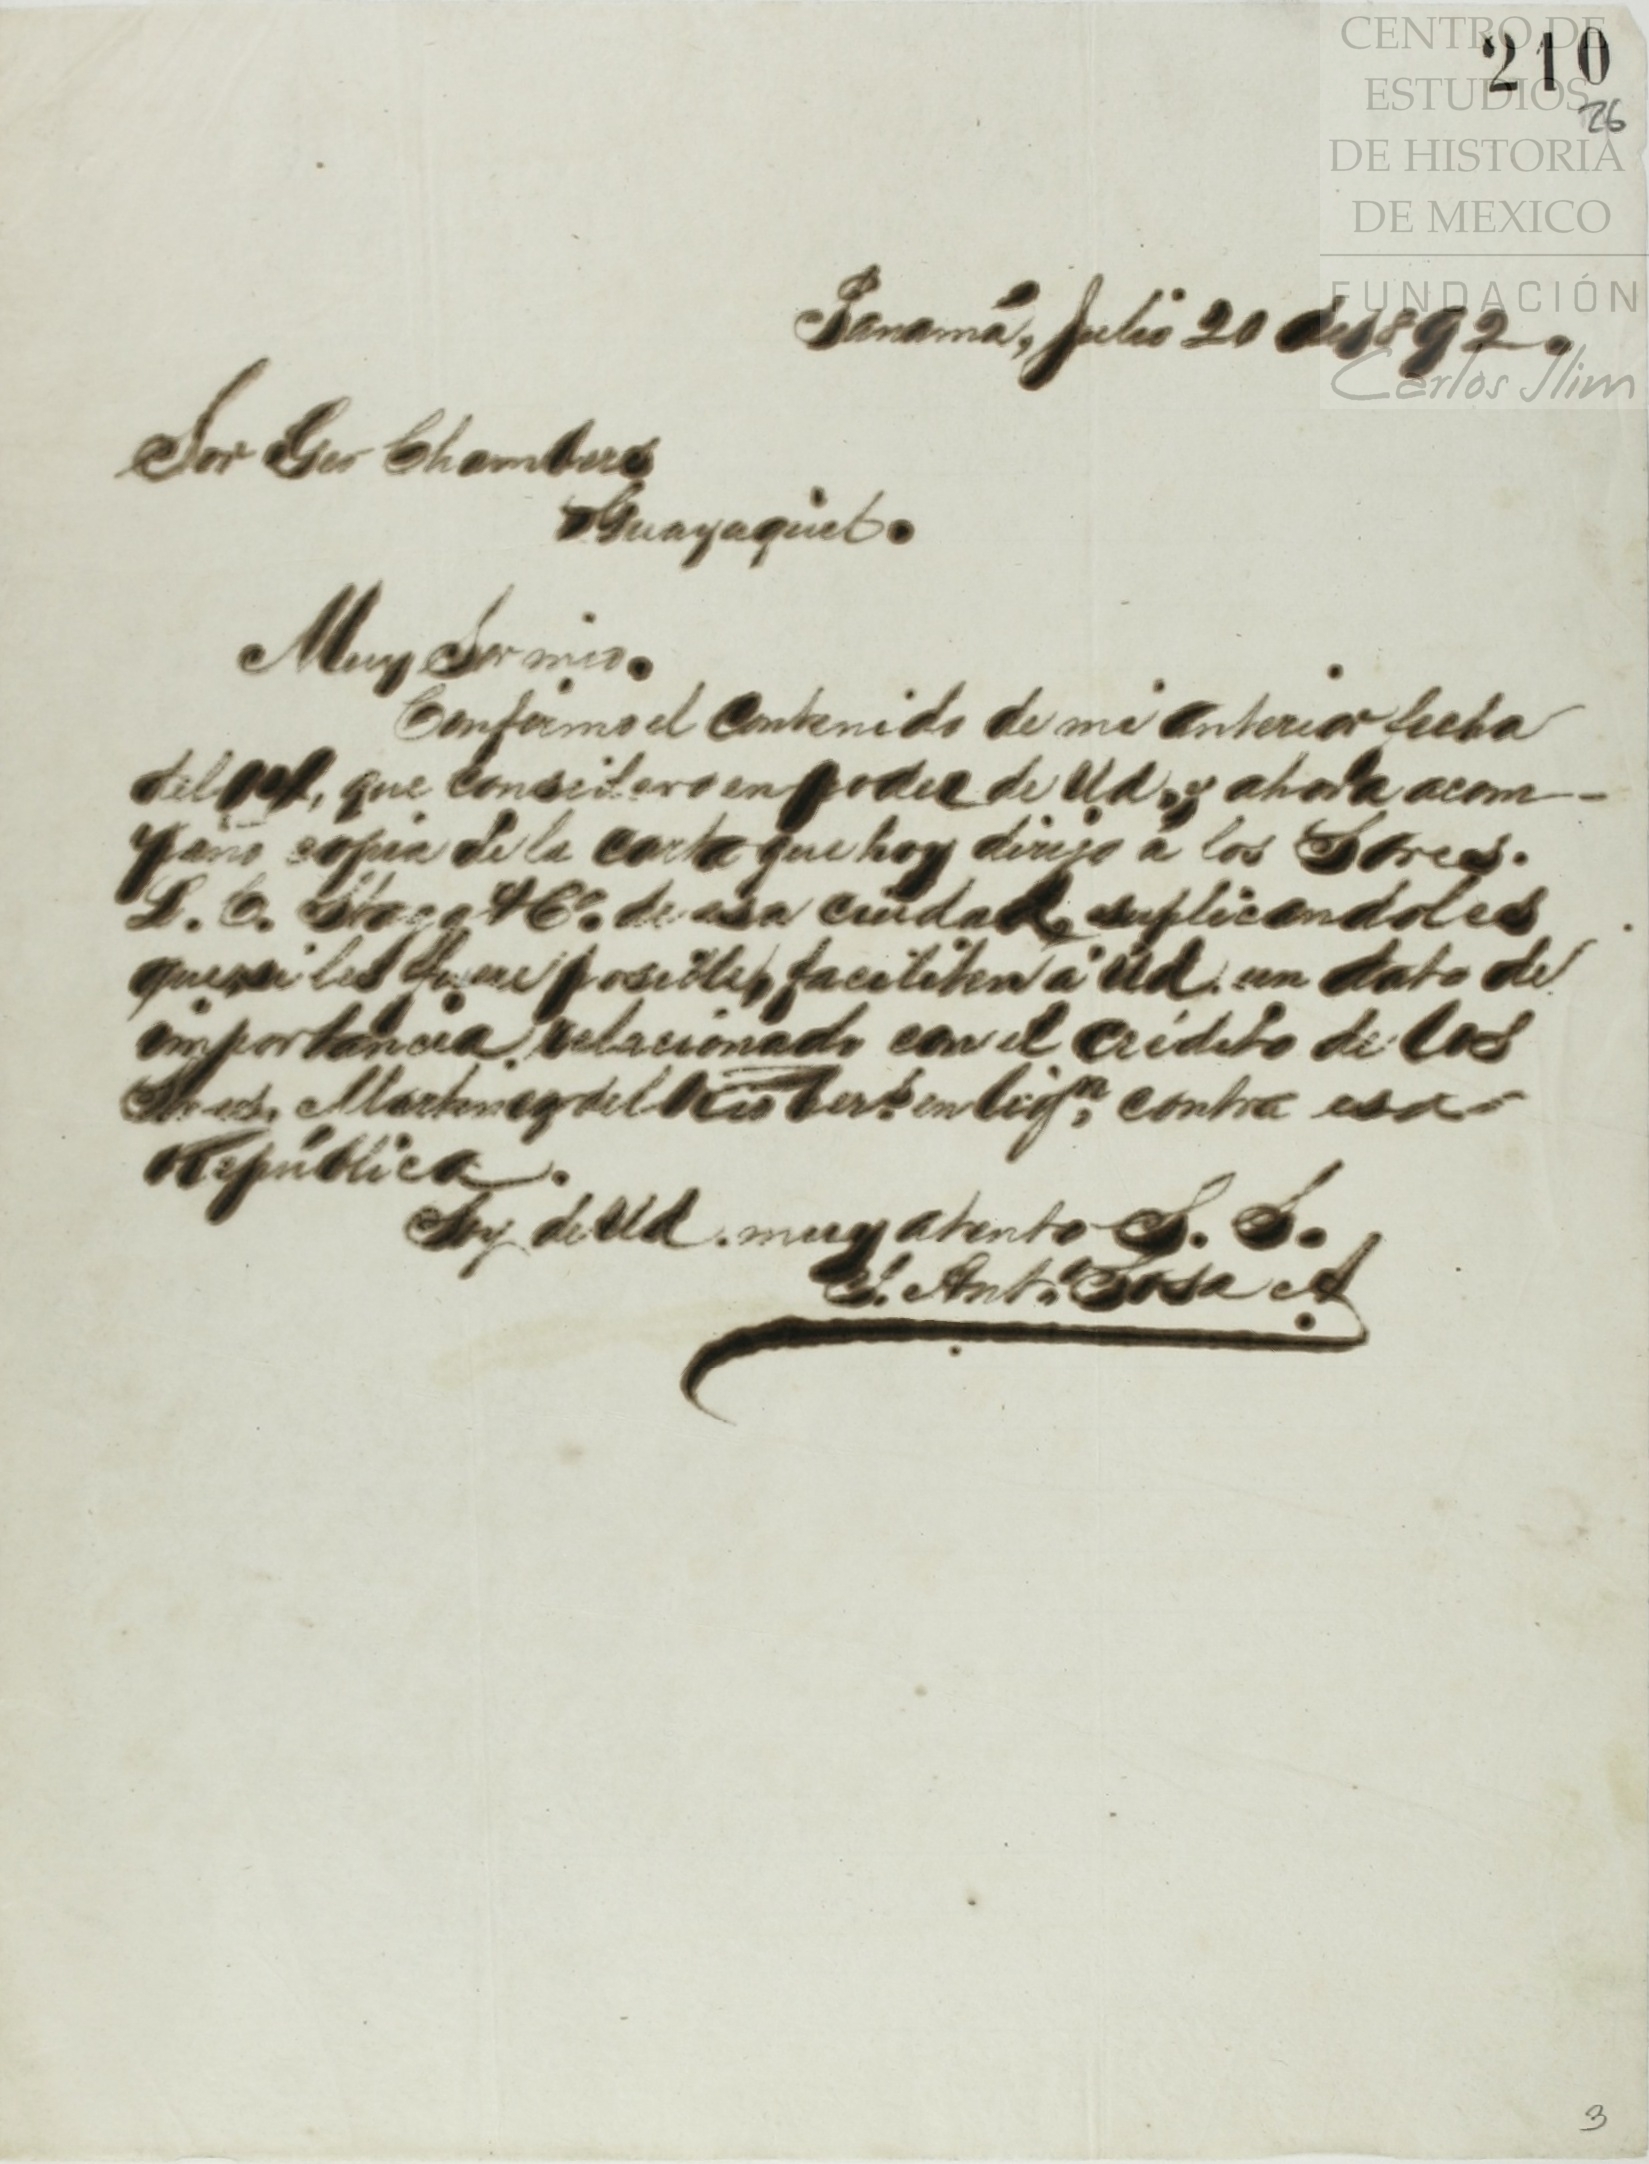 CENTRO DE
ESTUDIOS
DE HISTORIA
DE MEXICO
FUNDACIÓN
Carlos Slim
210
26
Panamá, Julio 20 de 1892.
Sor Geo Chambers
Guayaquil.
Muy Sor mio.
Confirmo el contenido de mi anterior fecha
del, que considero en poder de Ud, y ahora acom-
paño copia de la carta que hoy dirijo á los Sores.
L. C. Stagg & Cº. de esa ciudad, suplicandoles
que, si les fuere posible, faciliten á Ud. un dato de
importancia relacionado con el crédito de los
Sores. Martinez del Rio Hers. en liqn, contra esa
República.
Soy de Ud. muy atento S. S.
Antº Sosa A
3